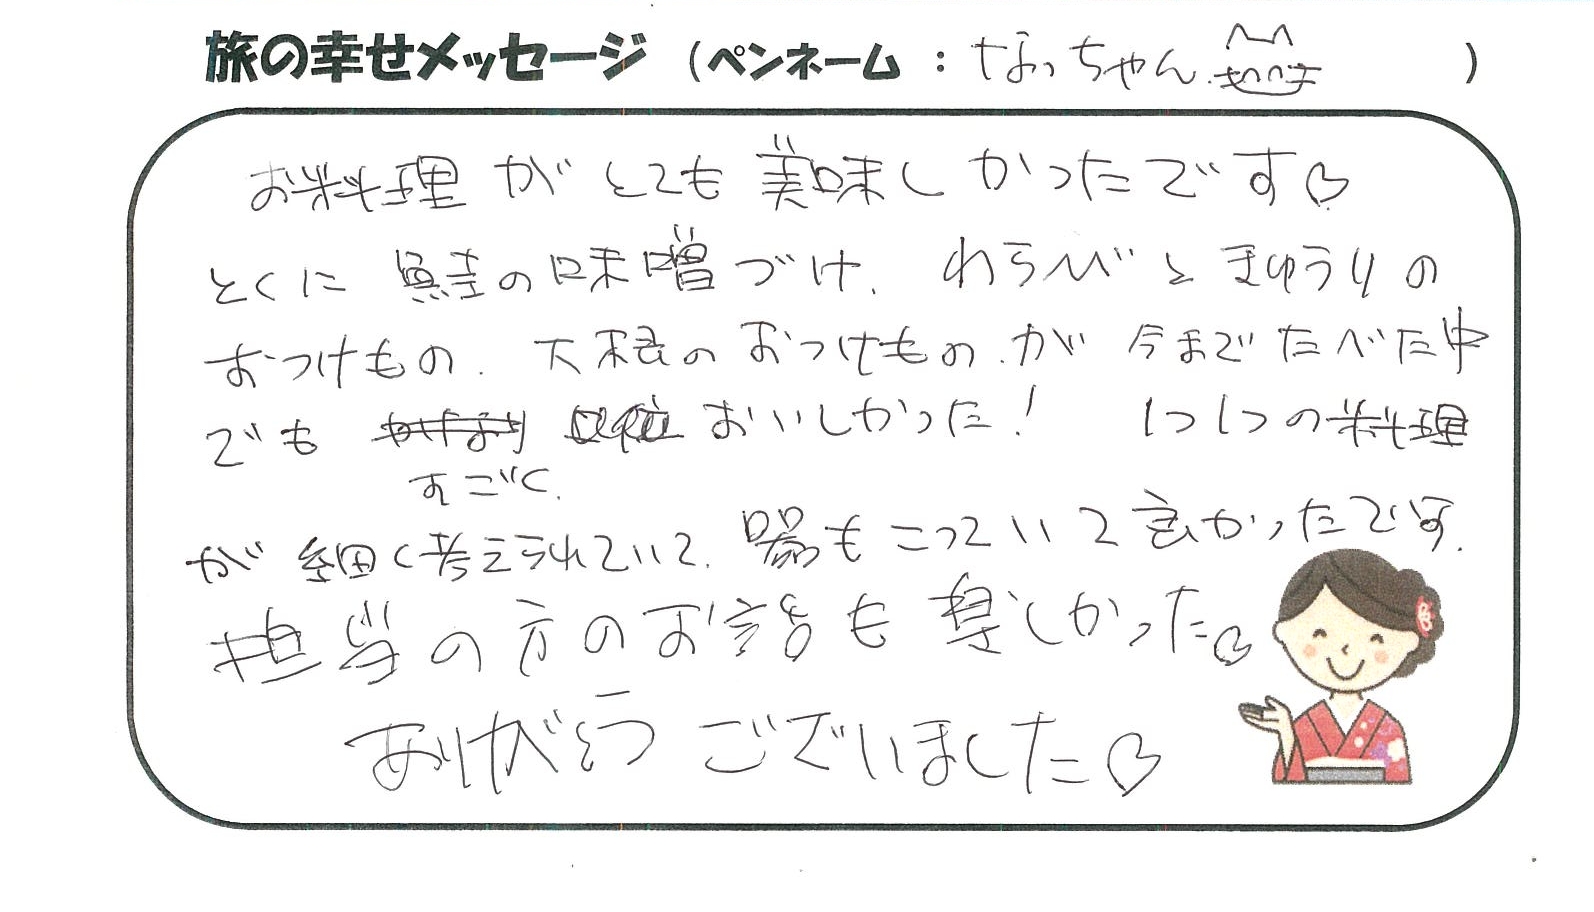 旅の幸せメッセージ (ペンネーム : なっちゃん )
お料理がとても美味しかったです♡
とくに鮭の味噌づけ、わらびときゅうりの
おつけもの、大根のおつけもの、が今までたべた中
でも おいしかった! 1つ1つの料理
すごく
が細く考えられていて、器もこっていて良かったです。
担当の方のお話も楽しかった♡
ありがとうございました♡